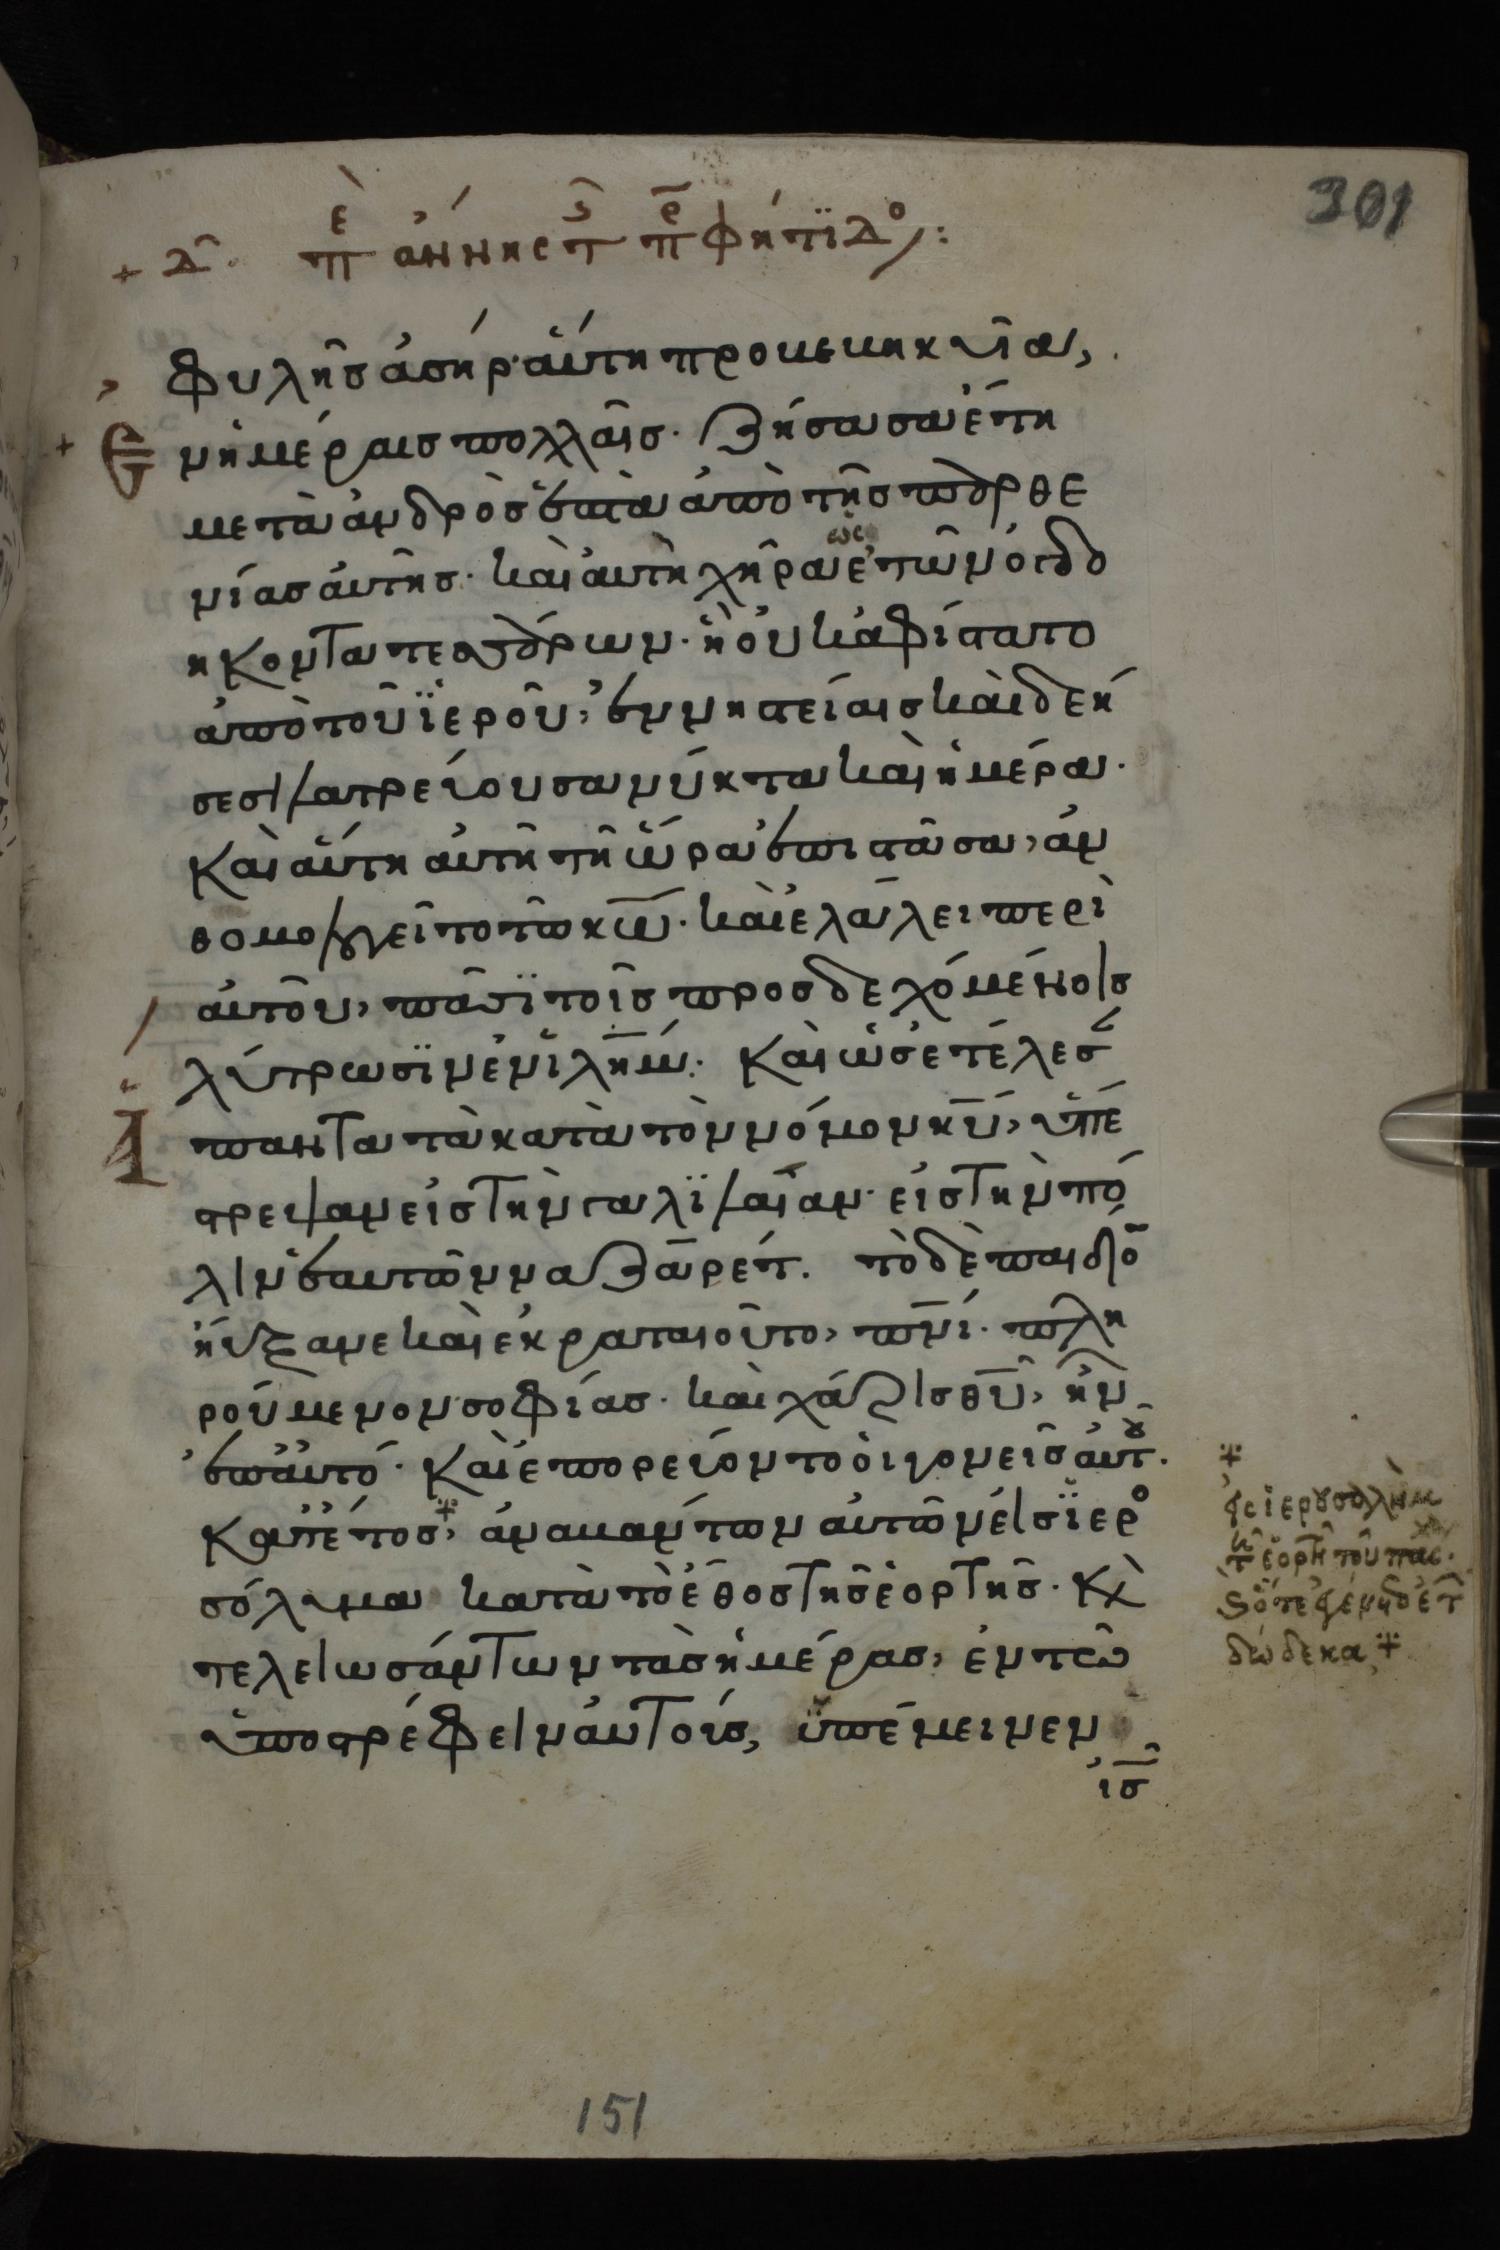 301
+ δ̑. πὲ ἄννης τ̑ πρ̅φήτιδο̸:
φυλῆσ ἀσήρ· αὕτη προβεβηκυῖα,
ἐν ἡμέραισ πολλαῖσ. ζήσασα ἔτη
μετὰ ἀνδρὸσ ἑπτὰ ἀπὸ τῆσ παρθε
νίασ αὐτῆσ. καὶ αὐτὴ χήρα ὡς ἐτῶν ὀγδο
ηκοντατεσσάρων. ἣ οὐκ ἀφίστατο
ἀπὸ τοῦ ϊεροῦ, ἐν νηστείαισ καὶ δεή
σεσι λατρεύουσα νύκτα καὶ ἡμέραν.
καὶ αὕτη αὐτῆ τῆ ὥρα ἐπιστᾶσα, ἀν
θομολογεῖτο τῶ κ̅ω̅. καὶ ἐλάλει περὶ
αὐτοῦ, πᾶσϊ τοῖσ προσδεχόμένοισ
λύτρωσϊν ἐν ϊ̅λ̅η̅μ̅. καὶ ὡσ ἐτέλεσ
παντα τὰ κατὰ τὸν νόμον κ̅υ̅, ὑπέ
στρεψαν εἰσ τὴν γαλϊλαίαν. εἰσ τὴν πό
λιν ἑαυτῶν ναζαρέτ. τὸ δὲ παιδίο̅
ηὔξανε καὶ ἐκραταιοῦτο, π̅ν̅ι. πλη
ρούμενον σοφίασ. καὶ χάρισ θ̅υ̅, ἦν
ἐπ ἀυτό. καὶ ἐπορεύοντο ὁι γονεῖσ ἀυτ̑.
κατ ἔτοσ, ἀναβάντων αὐτῶν εἰσ ϊερο
σόλυμα κατὰ τὸ ἔθοσ τῆσ ἑορτῆσ. κὲ
τελειωσάντων τὰσ ἡμέρασ, ἐν τῶ
ὑποστρέφειν ἀυτοὺσ, ὑπέμεινεν
ι̅σ̅
εἰς ἱερουσαλὴμ
τῆ ἑορτῆ τοῦ πάσ.
ὅτε ἐγένετο ἐτ̑
δώδεκα
151